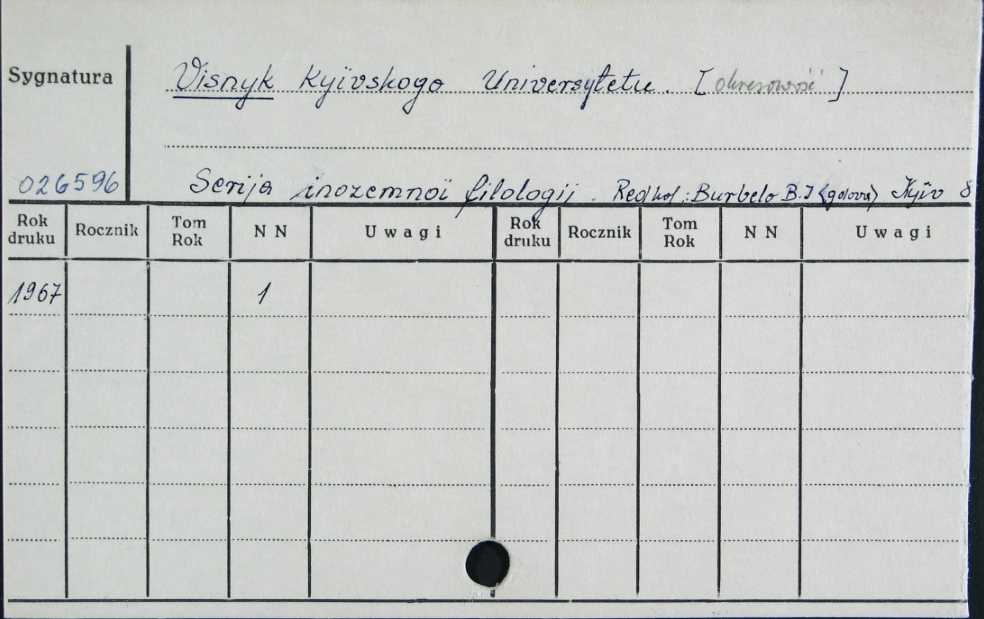 Sygnatura
Visnyk Kyïvskogo Universytetu. [okresowość]
026596
Serija inozemnoï filologij. Red kol: Burbelo B.I (golova) Kyïv 8
Rok druku Rocznik Tom Rok NN Uwagi Rok druku Rocznik Tom Rok NN Uwagi
1967 1